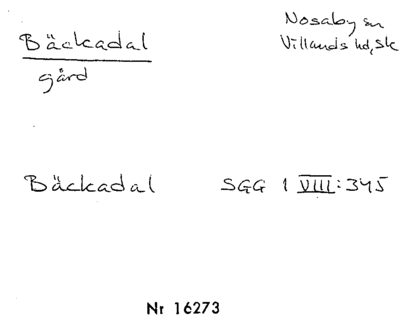 Bäckadal
gård
Nosaby sn
Villands hd, Sk
Bäckadal SGG 1 VIII:345
Nr 16273